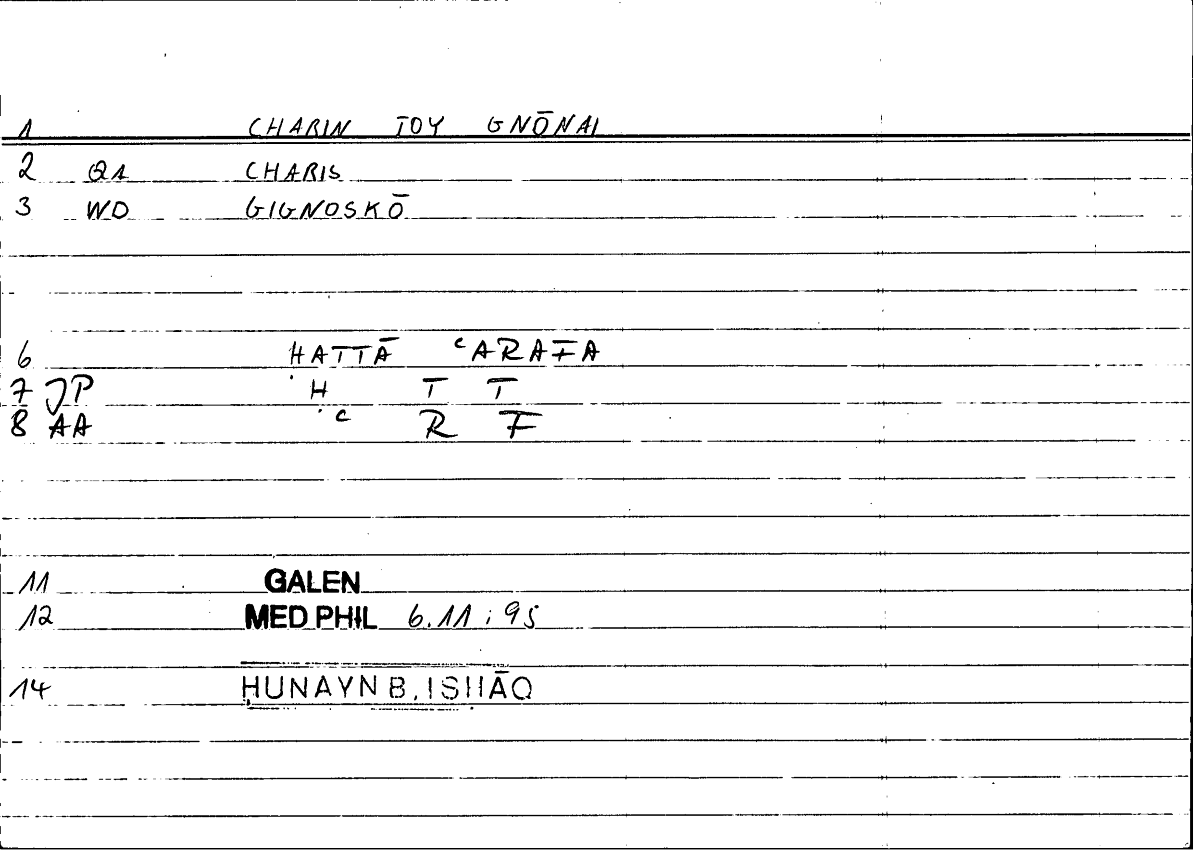 1 CHARIN TOY GNŌNAI
2 QA CHARIS
3 WD GIGNOSKŌ
6 ḤATTĀ ʿARAFA
7 JP Ḥ T T
8 AA ʿ R F
11 GALEN
12 MED PHIL 6.11 ; 95
14 ḤUNAYN B. ISḤĀQ